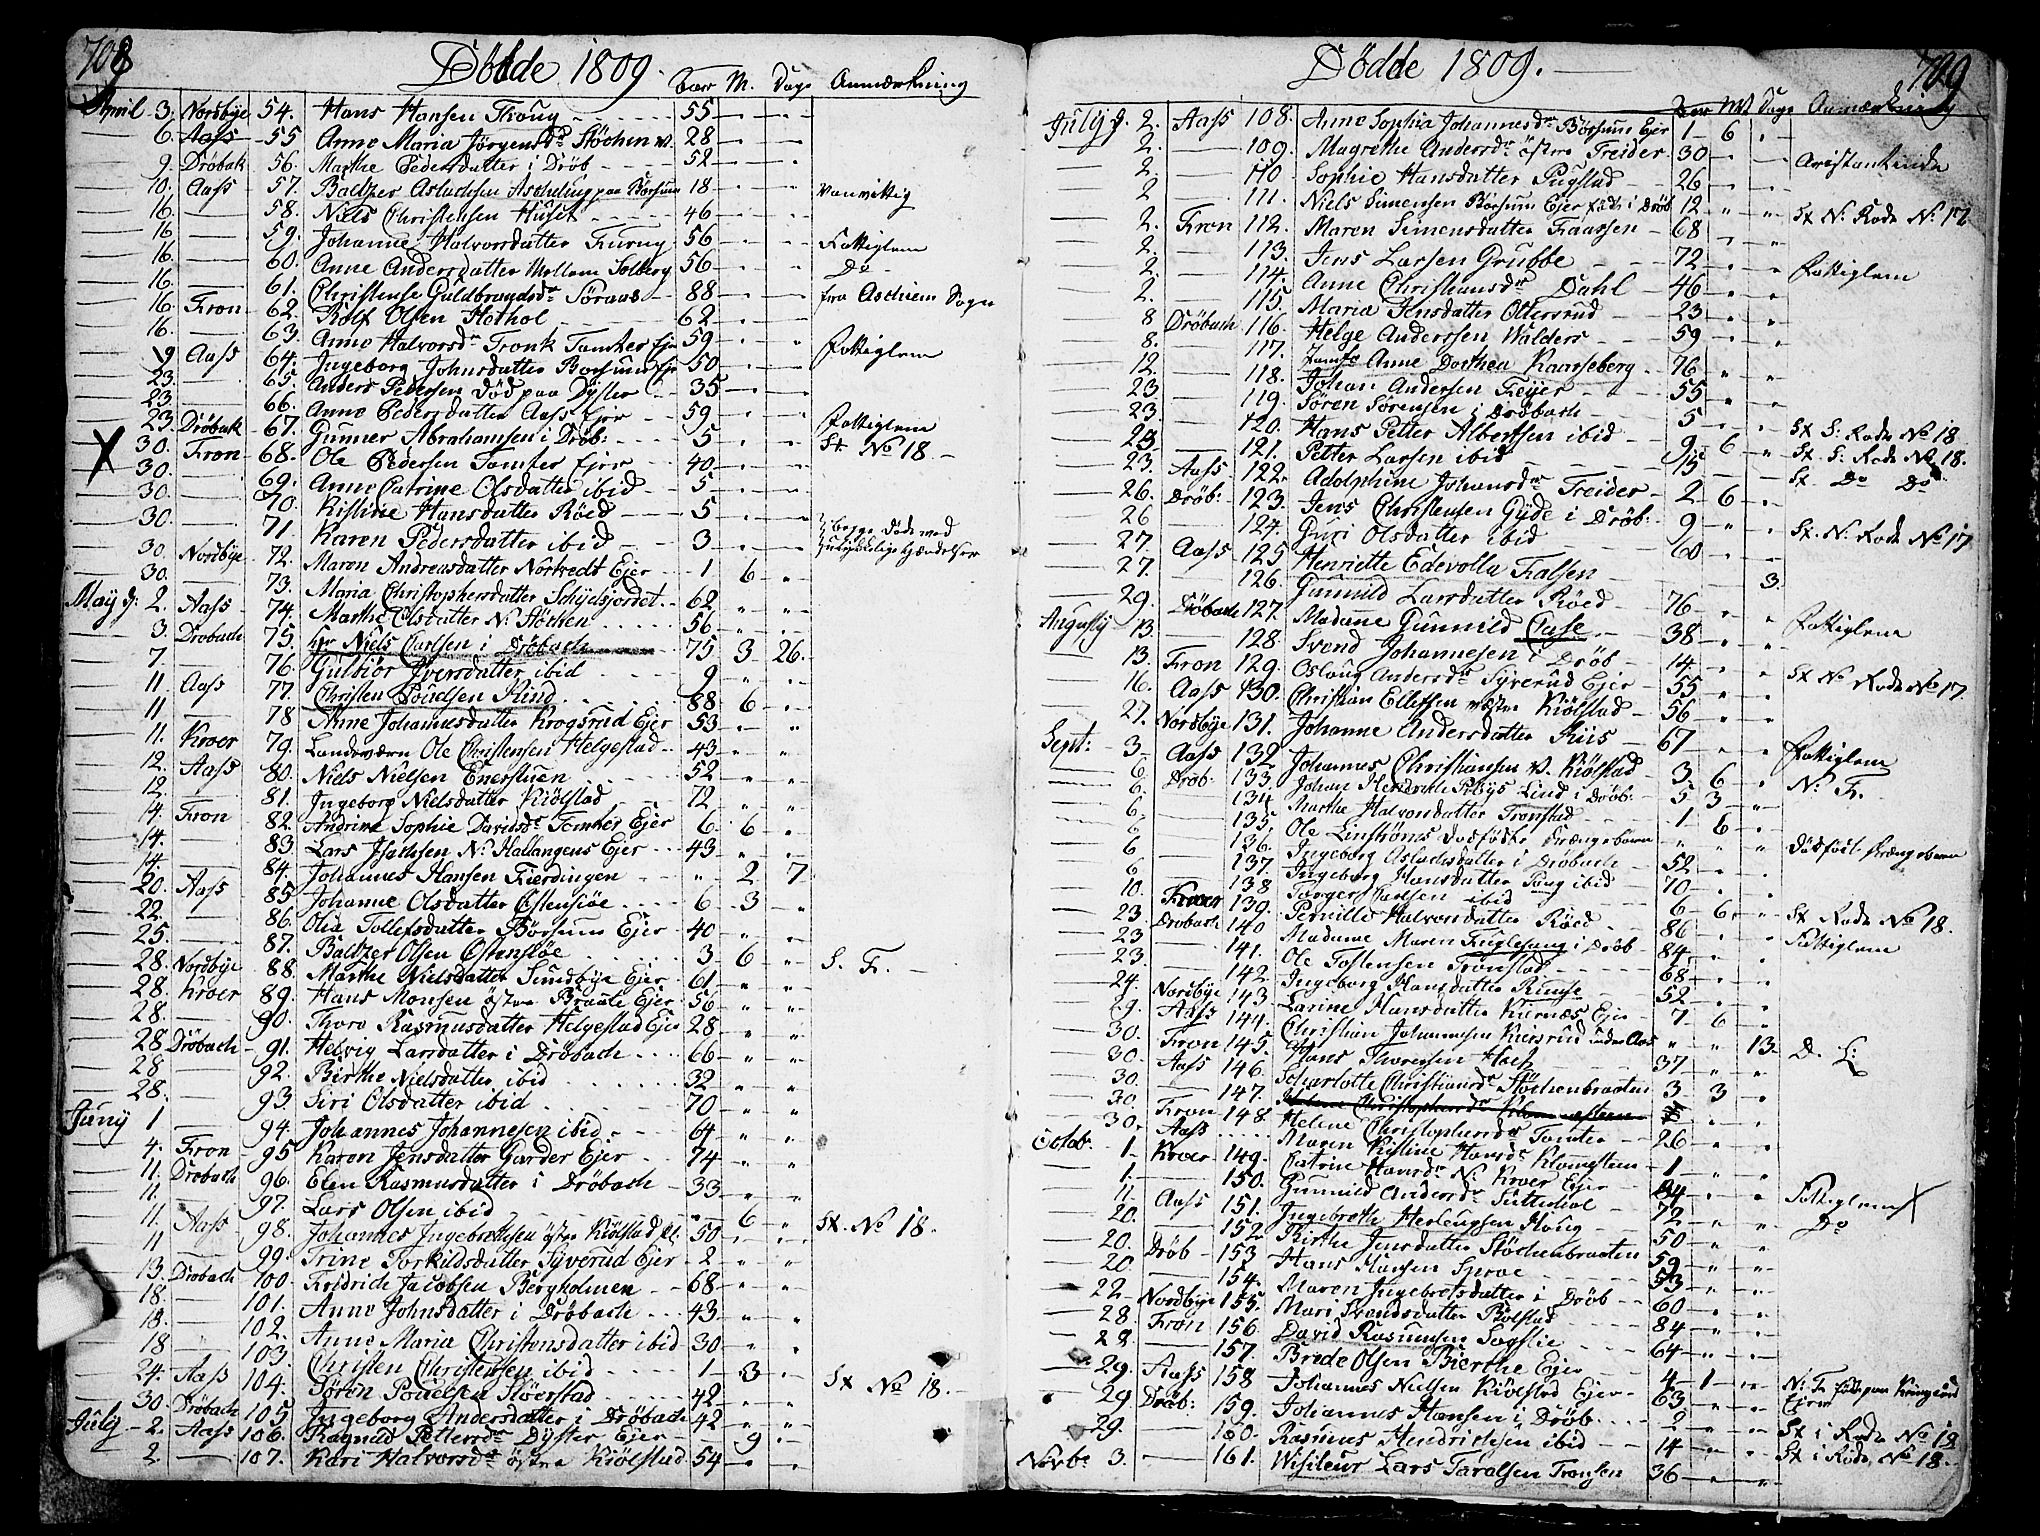 708
Dödde 1809.
Aar M. Dage Anmærkning
April 3. Nordbye 54. Hans Hansen Froug 55
6. Aass 55 Anne Maria Jörgensdr Stöchen W. 28
9. Dröbak 56. Marthe Pedersdatter i Dröb 52
10. Aass 57. Baltzer Aslachsen Aschehug paa Börsum 18 Vanvittig
16. 58. Niels Christensen Huset 46
16 59. Johanne Halvorsdatter Furuy 56 Fattiglem
16. 60. Anne Andersdatter Mellem Solberg 56 Do
16. 61. Christense Guldbrandsdr Söraas 88 fra Aschiem Sogn
16. Fron 62. Rolf Olsen Hethol 62
16. 63. Anne Halvorsdr Fronk Tomter Ejer 59 Fattiglem
19 Aass 64. Ingeborg Johnsdatter Borsum Ejr 50
23. 65. Anders Pedersen död paa Dÿster 35
23. 66. Anne Pedersdatter Aass Ejer 59 Fattiglem
23. Dröbak 67. Gunner Abrahamsen i Dröb: 5 St No 18.
30. Fron 68. Ole Pedersen Tomter Ejer 40
30. 69. Anne Catrine Olsdatter ibid 5
30. 70. Kistine Hansdatter Röed 5
30. 71. Karen Pedersdatter ibid 3
30. Nordbye 72. Maren Andreasdatter Norkvedt Ejer 1 6
30. 73. Maria Christophersdatter Schydsjordet 62
May d. 2. Aass 74. Marthe Olsdatter N: Stöchen 56
3. Dröbach 75. Hr Niels Carlsen i Dröbach 75 3 26.
7. 76. Gulbiör Iversdatter ibid 9
11. Aass 77. Christen Poulsen Rind 88 6
11 78 Anne Johannesdatter Krogsrud Ejer 53
11. Kroer 79. Landeværn Ole Christensen Helgestad 43
12. Aass 80. Niels Nielsen Enerstuen 52
12. 81. Ingeborg Nielsdatter Kiölstad 72
14. Fron 82. Andrine Sophie Davidsdr Tomter Ejer 6. 6
14. 83 Lars Isachsen N: Hallangens Ejer 43
14. 84. Johannes Hansen Fierdingen 2 7
20. Aass 85 Johanne Olsdatter Ostensiöe 6 3
22. 86. Olia Tollefsdatter Börsum Ejer 40
25. 87. Baltzer Olsen Ostensöe 3 6 S. Fr.
28. Nordbye 88. Marthe Nielsdatter Sundbye Ejer 61
28. Kroer 89. Hans Monsen östre Braate Ejer 56
28. 90. Thora Rasmusdatter Helgestad Ejer 28
28 Dröbach 91. Helvig Larsdatter i Dröbach 66
28 92. Birthe Nielsdatter ibid 32
28. 93. Siri Olsdatter ibid 70
Juny 1 94. Johannes Johannesen ibid 64
4. Fron 95 Karen Jensdatter Garder Ejer 74
11. Dröbach 96. Elen Rasmusdatter i Dröbach 33
11. 97. Lars Olsen ibid 6 St. No 18.
11. Aass 98. Johannes Ingebrethsen östre Kiölstad 50
11 99. Trine Torkildsdatter Syverud Ejer 2
13. Dröbach 100. Fredrich Jacobsen Bergholmen 68
18. 101. Anne Johnsdatter i Dröbach 43
18. 102. Anne Maria Christensdatter ibid 30
18 103. Christen Christensen ibid 1 3 St No 18.
24. Aass 104. Sören Povelsen Stöerstad 42
30. Dröbach 105 Ingeborg Andersdatter i Dröbach 42
July 2. Aass 106. Ragnild Pettersdr Dÿster Ejer 9
2. 107. Kari Halvorsdr östre Kiölstad 54
709
Dödde 1809.
Aar Mt Dage Anmærkning
July d. 2. Aass 108. Anne Sophia Johannesdr Börsum Ejer 1 6
2. 109. Magrethe Andersdr östre Treider 30
2. 110 Sophie Hansdatter Pugstad 26
2 111. Niels Simensen Börsum Ejer föds i Dröb 12 St N: Rode No 17
2. Fron 112. Maren Simensdatter Faassen 68
2. 113. Jens Larsen Grubbe 72 Fattiglem
2. 114. Anne Christiansdr Dahl 46
2. 115. Maria Jensdatter Ottersrud 23
8 Dröbach 116. Helge Anderssen Walders 59
8. 117. Jomfr Anne Dorthea Kaarseberg 76
12. 118. Johan Andersen Freyer 55
23 119. Sören Sörensen i Dröbach 5
23. 120. Hans Petter Albertsen ibid 9 6 St S: Rode No 18
23. 121. Petter Larsen ibid 15 St. S: Rode No 18.
23. Aass 122. Adolphine Johansdr Treider 2 6 St Do Do
26. Dröb: 123. Jens Christensen Gyde i Dröb: 9
26 124. Guri Olsdatter ibid 60 St. N: Rode No 17
27. Aass 125 Henriette Edevolla Falsen 3.
27. 126. Gunnild Larsdatter Röed 76
29. Dröbach 127. Madame Gunnild Clase 38 Fattiglem
Augusty 13. 128 Svend Johannesen i Dröb 14
13. Fron 129. Oslaug Andersdr Syverud Ejer 55 St No Rode No 17.
16. Aass 130. Christian Ellefsen vestre Kiölstad 56
27. Nordbye 131. Johanne Andersdatter Kiis 67 Fattiglem
Sept: 3 Aass 132 Johannes Christiansen V. Kiölstad 3 6 N: Fr.
6. Dröb: 133. Johan Hendrich Lind i Dröb: 5 3
6. 134 Marthe Halvorsdatter Fronstad 1 6
6. 135. Ole Linströms Dödfödte Drængebarn Dödfödt Drængebarn
6 136. Ingeborg Aslachsdatter i Dröbach 52
6 137. Ingeborg Hansdatter ibid 70
10. Kroer 138 Torger Carlsen ibid 6 6 St Rode No 18.
23. Dröbach 139. Pernille Halvorsdatter Röed 86 Fattiglem
23 140 Madame Maren Fuglesang i Dröb 84
23. 141. Ole Tostensen Fronstad 68
24. 142. Ingeborg Hansdatter Ruuse 52
Nordbye 143 Larine Hansdatter Kurnæs Ejer 7 6
29. Aass 144. Christian Johannesen Kiersrud under Aas 13 D. L:
30. Fron 145. Hans Thoresen 37
30. Aass 146. Scharlotte Christiansdr Stöchenbraaten 3 3
30. 147.
30. Fron 148 Helene Christophersdr Tomter 26
Aass Maren Kistine Hansdr Klomesteen 1
Octob. 1. Kroer 149. Catrine Hansdr N: Kroer Ejer 84
1. 150. Gunnild Andersdr Suttehol 72 Fattiglem
11. Aass 151. Ingebreth Herlaugsen Houg 50 Do
20. 152 Birthe Jensdatter Stöchenbraaten 59
20. Dröb 153 Hans Hansen Sproe 53
20. 154. Maren Ingebretsdatter i Dröb 60
22 Nordbye 155. Mari Svendsdatter Bölstad 84
28. Fron 156 David Rasmusen Sogstie 64
28 157. Brede Olsen Bierthe Ejer 4 1
29. Aass 158 Johannes Nielsen Kiölstad Ejer 63
29 Dröb: 159. Johannes Hansen i Dröb 2 St i Rode No 18
29. 160. Rasmus Hendrichsen ibid 14 St i Rode No 18.
Novbr 3. 161. Wisiteur Lars Taralsen Fronsen 36